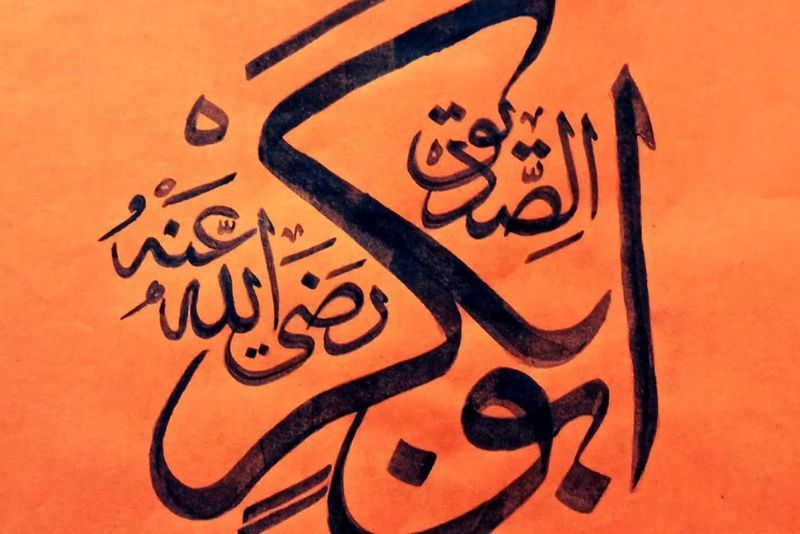 ابو بكرٍ
الصِّديق
رَضَي اللهُ عَنْهُ